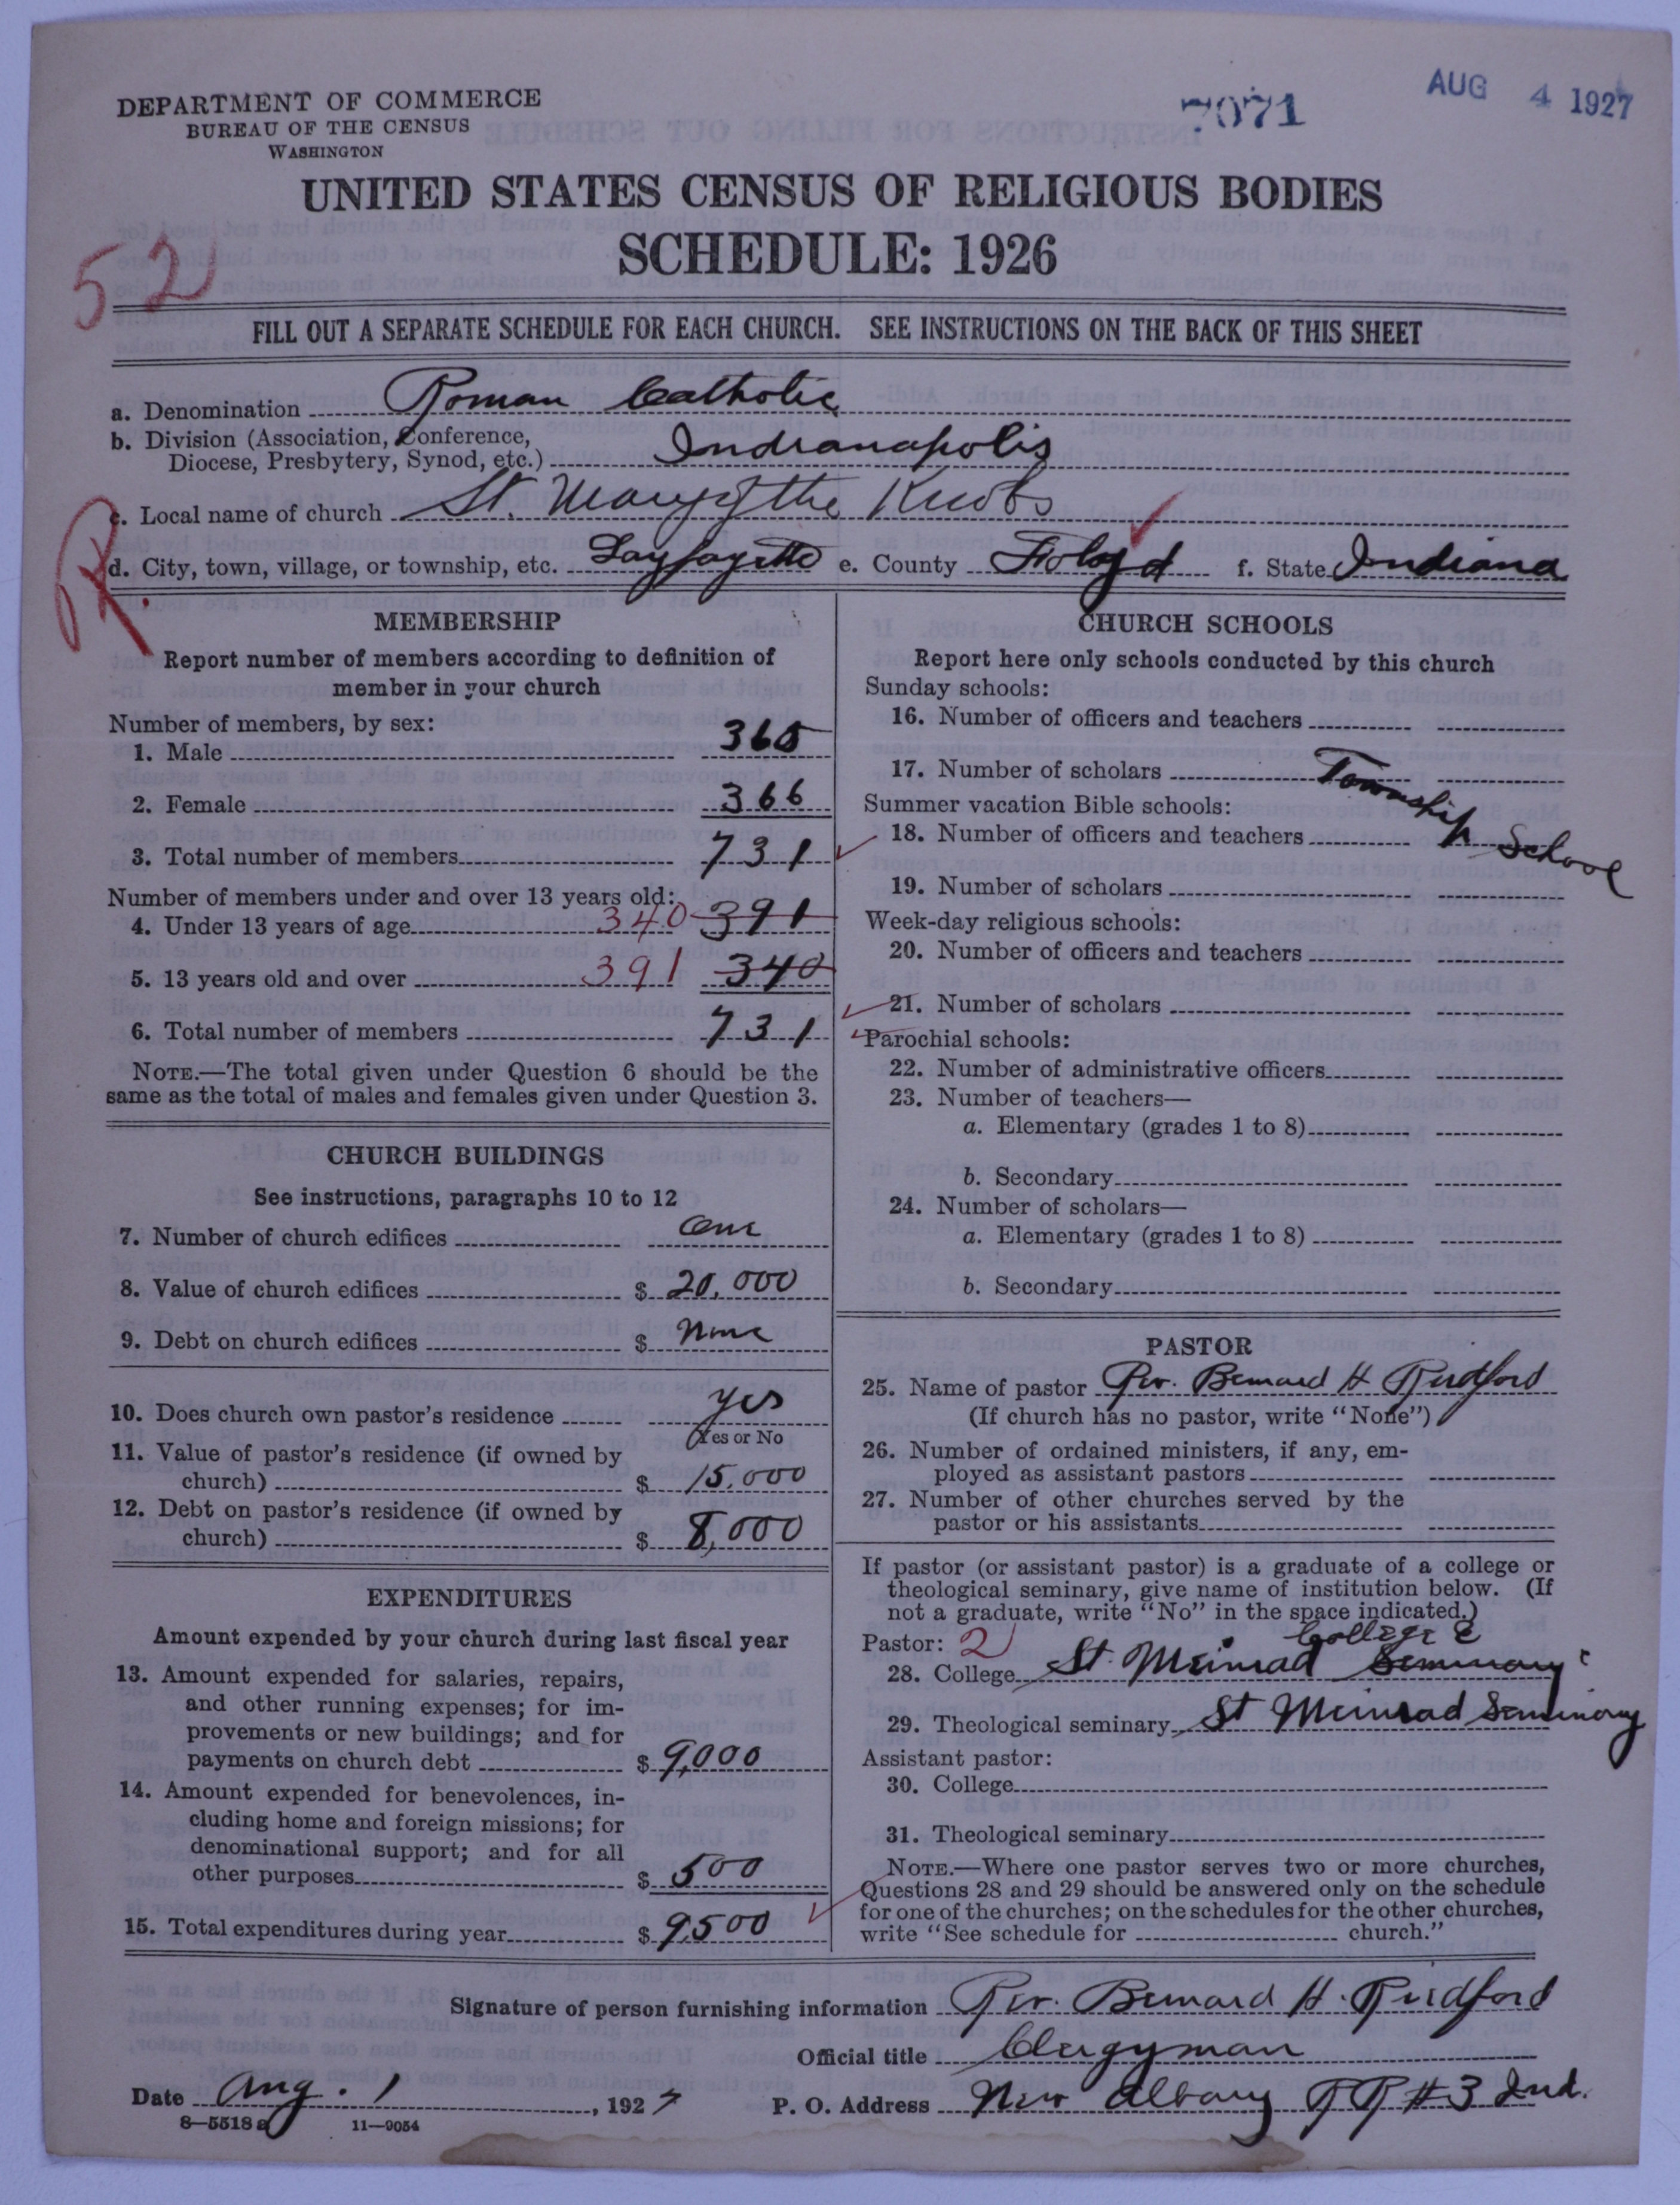 DEPARTMENT OF COMMERCE
BUREAU OF THE CENSUS
WASHINGTON
7071
AUG 4 1927
UNITED STATES CENSUS OF RELIGIOUS BODIES
SCHEDULE: 1926
52
FILL OUT A SEPARATE SCHEDULE FOR EACH CHURCH. SEE INSTRUCTIONS ON THE BACK OF THIS SHEET
a. Denomination Roman Catholic
b. Division (Association, Conference,
Diocese, Presbytery, Synod, etc.) Indianapolis
c. Local name of church St. Mary of the Knobs
R.
d. City, town, village, or township, etc. Layfayette e. County Floyd f. State Indiana
MEMBERSHIP
Report number of members according to definition of
member in your church
Number of members, by sex:
1. Male 365
2. Female 366
3. Total number of members 731
Number of members under and over 13 years old:
4. Under 13 years of age 340 391
5. 13 years old and over 391 340
6. Total number of members 731
NOTE.—The total given under Question 6 should be the
same as the total of males and females given under Question 3.
CHURCH BUILDINGS
See instructions, paragraphs 10 to 12
7. Number of church edifices One
8. Value of church edifices $ 20,000
9. Debt on church edifices $ None
10. Does church own pastor's residence Yes
Yes or No
11. Value of pastor's residence (if owned by
church) $ 15,000
12. Debt on pastor's residence (if owned by
church) $ 8,000
EXPENDITURES
Amount expended by your church during last fiscal year
13. Amount expended for salaries, repairs,
and other running expenses; for im-
provements or new buildings; and for
payments on church debt $ 9,000
14. Amount expended for benevolences, in-
cluding home and foreign missions; for
denominational support; and for all
other purposes $ 500
15. Total expenditures during year $ 9,500
CHURCH SCHOOLS
Report here only schools conducted by this church
Sunday schools:
16. Number of officers and teachers
17. Number of scholars Township School
Summer vacation Bible schools:
18. Number of officers and teachers
19. Number of scholars
Week-day religious schools:
20. Number of officers and teachers
21. Number of scholars
Parochial schools:
22. Number of administrative officers
23. Number of teachers—
a. Elementary (grades 1 to 8)
b. Secondary
24. Number of scholars—
a. Elementary (grades 1 to 8)
b. Secondary
PASTOR
25. Name of pastor Rev. Bernard H Rudford
(If church has no pastor, write "None")
26. Number of ordained ministers, if any, em-
ployed as assistant pastors
27. Number of other churches served by the
pastor or his assistants
If pastor (or assistant pastor) is a graduate of a college or
theological seminary, give name of institution below. (If
not a graduate, write "No" in the space indicated.)
Pastor: 2
College
28. College St. Meinrad Seminary
29. Theological seminary St Meinrad Seminary
Assistant pastor:
30. College
31. Theological seminary
NOTE.—Where one pastor serves two or more churches,
Questions 28 and 29 should be answered only on the schedule
for one of the churches; on the schedules for the other churches,
write "See schedule for church."
Signature of person furnishing information Rev. Bernard H. Rudford
Official title Clergyman
Date Aug. 1, 1927 P. O. Address New Albany RR #3 Ind.
8—5518 a 11—9054